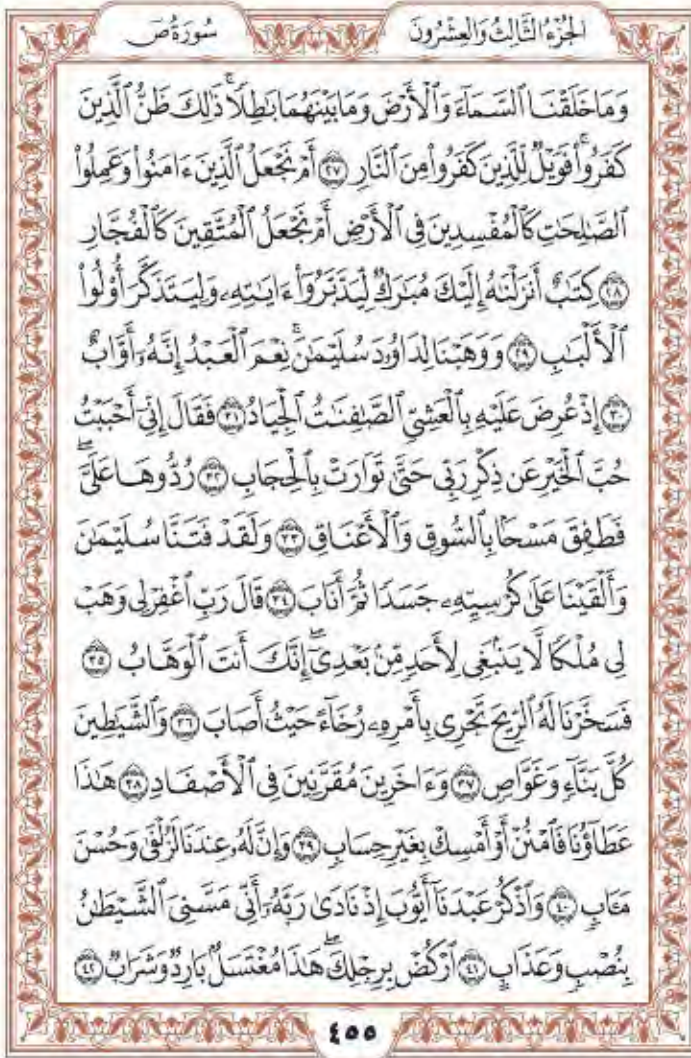 الجُزْءُ الثَّالِثُ وَالعِشْرُونَ سُورَةُ صٓ
وَمَا خَلَقْنَا ٱلسَّمَآءَ وَٱلْأَرْضَ وَمَا بَيْنَهُمَا بَٰطِلًاۚ ذَٰلِكَ ظَنُّ ٱلَّذِينَ
كَفَرُوا۟ۚ فَوَيْلٌ لِّلَّذِينَ كَفَرُوا۟ مِنَ ٱلنَّارِ ۝٢٧ أَمْ نَجْعَلُ ٱلَّذِينَ ءَامَنُوا۟ وَعَمِلُوا۟
ٱلصَّٰلِحَٰتِ كَٱلْمُفْسِدِينَ فِى ٱلْأَرْضِ أَمْ نَجْعَلُ ٱلْمُتَّقِينَ كَٱلْفُجَّارِ
۝٢٨ كِتَٰبٌ أَنزَلْنَٰهُ إِلَيْكَ مُبَٰرَكٌ لِّيَدَّبَّرُوٓا۟ ءَايَٰتِهِۦ وَلِيَتَذَكَّرَ أُو۟لُوا۟
ٱلْأَلْبَٰبِ ۝٢٩ وَوَهَبْنَا لِدَاوُۥدَ سُلَيْمَٰنَۚ نِعْمَ ٱلْعَبْدُ إِنَّهُۥٓ أَوَّابٌ
۝٣٠ إِذْ عُرِضَ عَلَيْهِ بِٱلْعَشِىِّ ٱلصَّٰفِنَٰتُ ٱلْجِيَادُ ۝٣١ فَقَالَ إِنِّىٓ أَحْبَبْتُ
حُبَّ ٱلْخَيْرِ عَن ذِكْرِ رَبِّى حَتَّىٰ تَوَارَتْ بِٱلْحِجَابِ ۝٣٢ رُدُّوهَا عَلَىَّۖ
فَطَفِقَ مَسْحًۢا بِٱلسُّوقِ وَٱلْأَعْنَاقِ ۝٣٣ وَلَقَدْ فَتَنَّا سُلَيْمَٰنَ
وَأَلْقَيْنَا عَلَىٰ كُرْسِيِّهِۦ جَسَدًا ثُمَّ أَنَابَ ۝٣٤ قَالَ رَبِّ ٱغْفِرْ لِى وَهَبْ
لِى مُلْكًا لَّا يَنۢبَغِى لِأَحَدٍ مِّنۢ بَعْدِىٓۖ إِنَّكَ أَنتَ ٱلْوَهَّابُ ۝٣٥
فَسَخَّرْنَا لَهُ ٱلرِّيحَ تَجْرِى بِأَمْرِهِۦ رُخَآءً حَيْثُ أَصَابَ ۝٣٦ وَٱلشَّيَٰطِينَ
كُلَّ بَنَّآءٍ وَغَوَّاصٍ ۝٣٧ وَءَاخَرِينَ مُقَرَّنِينَ فِى ٱلْأَصْفَادِ ۝٣٨ هَٰذَا
عَطَآؤُنَا فَٱمْنُنْ أَوْ أَمْسِكْ بِغَيْرِ حِسَابٍ ۝٣٩ وَإِنَّ لَهُۥ عِندَنَا لَزُلْفَىٰ وَحُسْنَ
مَـَٔابٍ ۝٤٠ وَٱذْكُرْ عَبْدَنَآ أَيُّوبَ إِذْ نَادَىٰ رَبَّهُۥٓ أَنِّى مَسَّنِىَ ٱلشَّيْطَٰنُ
بِنُصْبٍ وَعَذَابٍ ۝٤١ ٱرْكُضْ بِرِجْلِكَۖ هَٰذَا مُغْتَسَلٌۢ بَارِدٌ وَشَرَابٌ ۝٤٢
٤٥٥